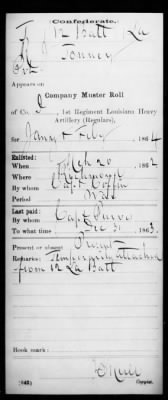 Confederate.
12 Batt La
Pvt
Appears on
Company Muster Roll
of Co. I, 1st Regiment Louisiana Heavy
Artillery (Regulars),
for Jany & Feby, 1864
Enlisted:
When 20, 1862
Where
By whom Capt
Period War
Last paid:
By whom Capt
To what time Dec 31, 1863.
Present or absent Present
Remarks: Temporarily attached
from 12 La Batt
Book mark:
(642)
Copyist.